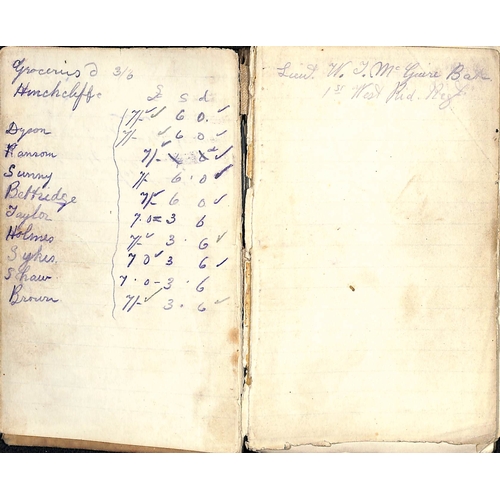 Groceries 3/6
Hinchcliffe
£ s d
7/- ✓ 6 0 ✓
Dyson 7/- ✓ 6 0 ✓
Ransom 7/- 6 0 ✓
Sunny 7/- 6 · 0 ✓
Bettridge 7/- 6 0 ✓
Taylor 7 . 0 = 3 6
Holmes 7/- ✓ 3 · 6 ✓
Sykes 7 0 ✓ 3 6 ✓
Shaw 7 · 0 - 3 · 6
Brown 7/- ✓ 3 · 6 ✓
Lieut. W. J. McGuire
1st West Rid. Regt